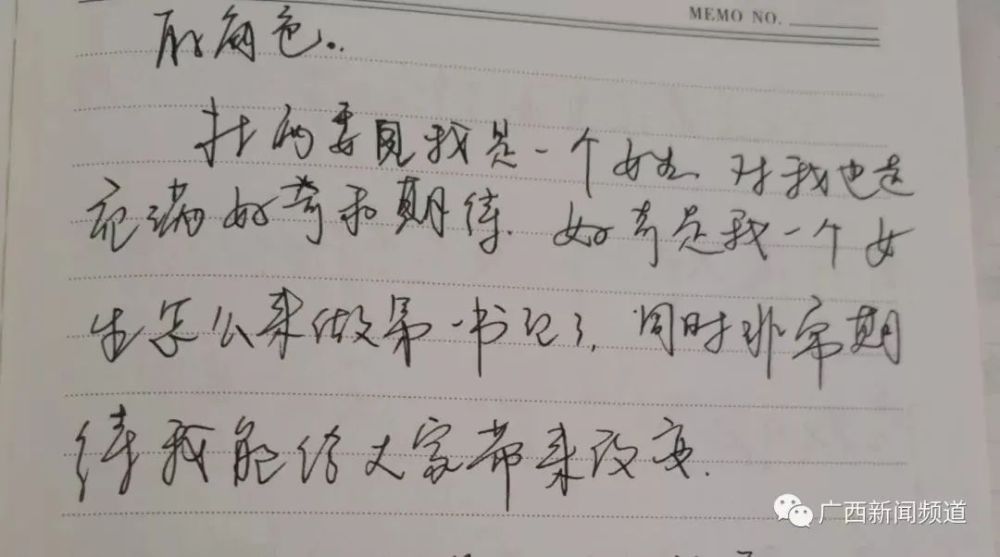 MEMO NO.
角色。
村两委见我是一个女生 对我也是
充满好奇和期待. 好奇是我一个女
生怎么来做第一书记了, 同时非常期
待我能给大家带来改变.
广西新闻频道